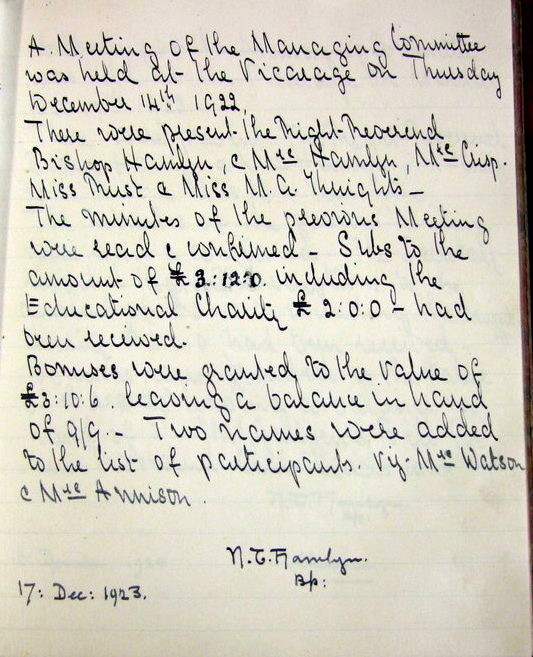 A. Meeting of the Managing Committee
was held at the Vicarage on Thursday
December 14th 1922.
There were present the Right Reverend
Bishop Hamlyn, & Mrs Hamlyn, Mrs Crisp.
Miss Trust & Miss M.A. Thrights –
The minutes of the previous Meeting
were read & confirmed – Subs to the
amount of £3:12:0. including the
Educational Charity £ 2:0:0 – had
been received.
Bonuses were granted to the value of
£3:10:6. leaving a balance in hand
of 9/9. – Two names were added
to the list of participants. viz. Mrs Watson
& Mrs Annison.
N.T. Hamlyn.
Bp:
17: Dec: 1923.